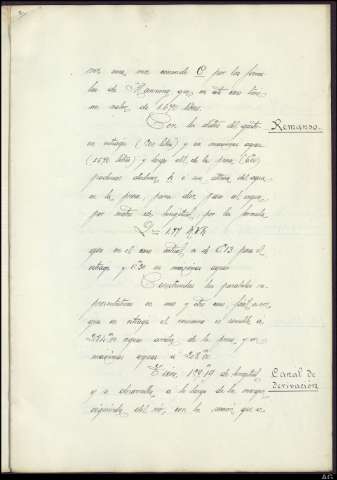 por una vez conocido C por la formu-
la de Manning que en este caso tiene
un valor de 1.690 litros.
Con los datos del gasto
en estiaje (200 litros) y en maximas aguas
(1.690 litros) y largo de la presa (6 m)
podemos deducir h o sea altura del agua
en la presa, para dar paso al agua
por metro de longitud, por la formula
Q = 1.77 h √h
que en el caso actual, es de 0'13 para el
estiaje y 0'30 en maximas aguas
Construidas las parabolas re-
presentativas en uno y otro caso, facil es ver
que en estiaje el remanso es sensible a
224 m aguas arriba de la presa, y en
maximas aguas a 268 m
Tiene, de longitud
y se desarrolla, a lo largo de la margen
izquierda del rio, con la union que se
Remanso.
Canal de
derivación
AG